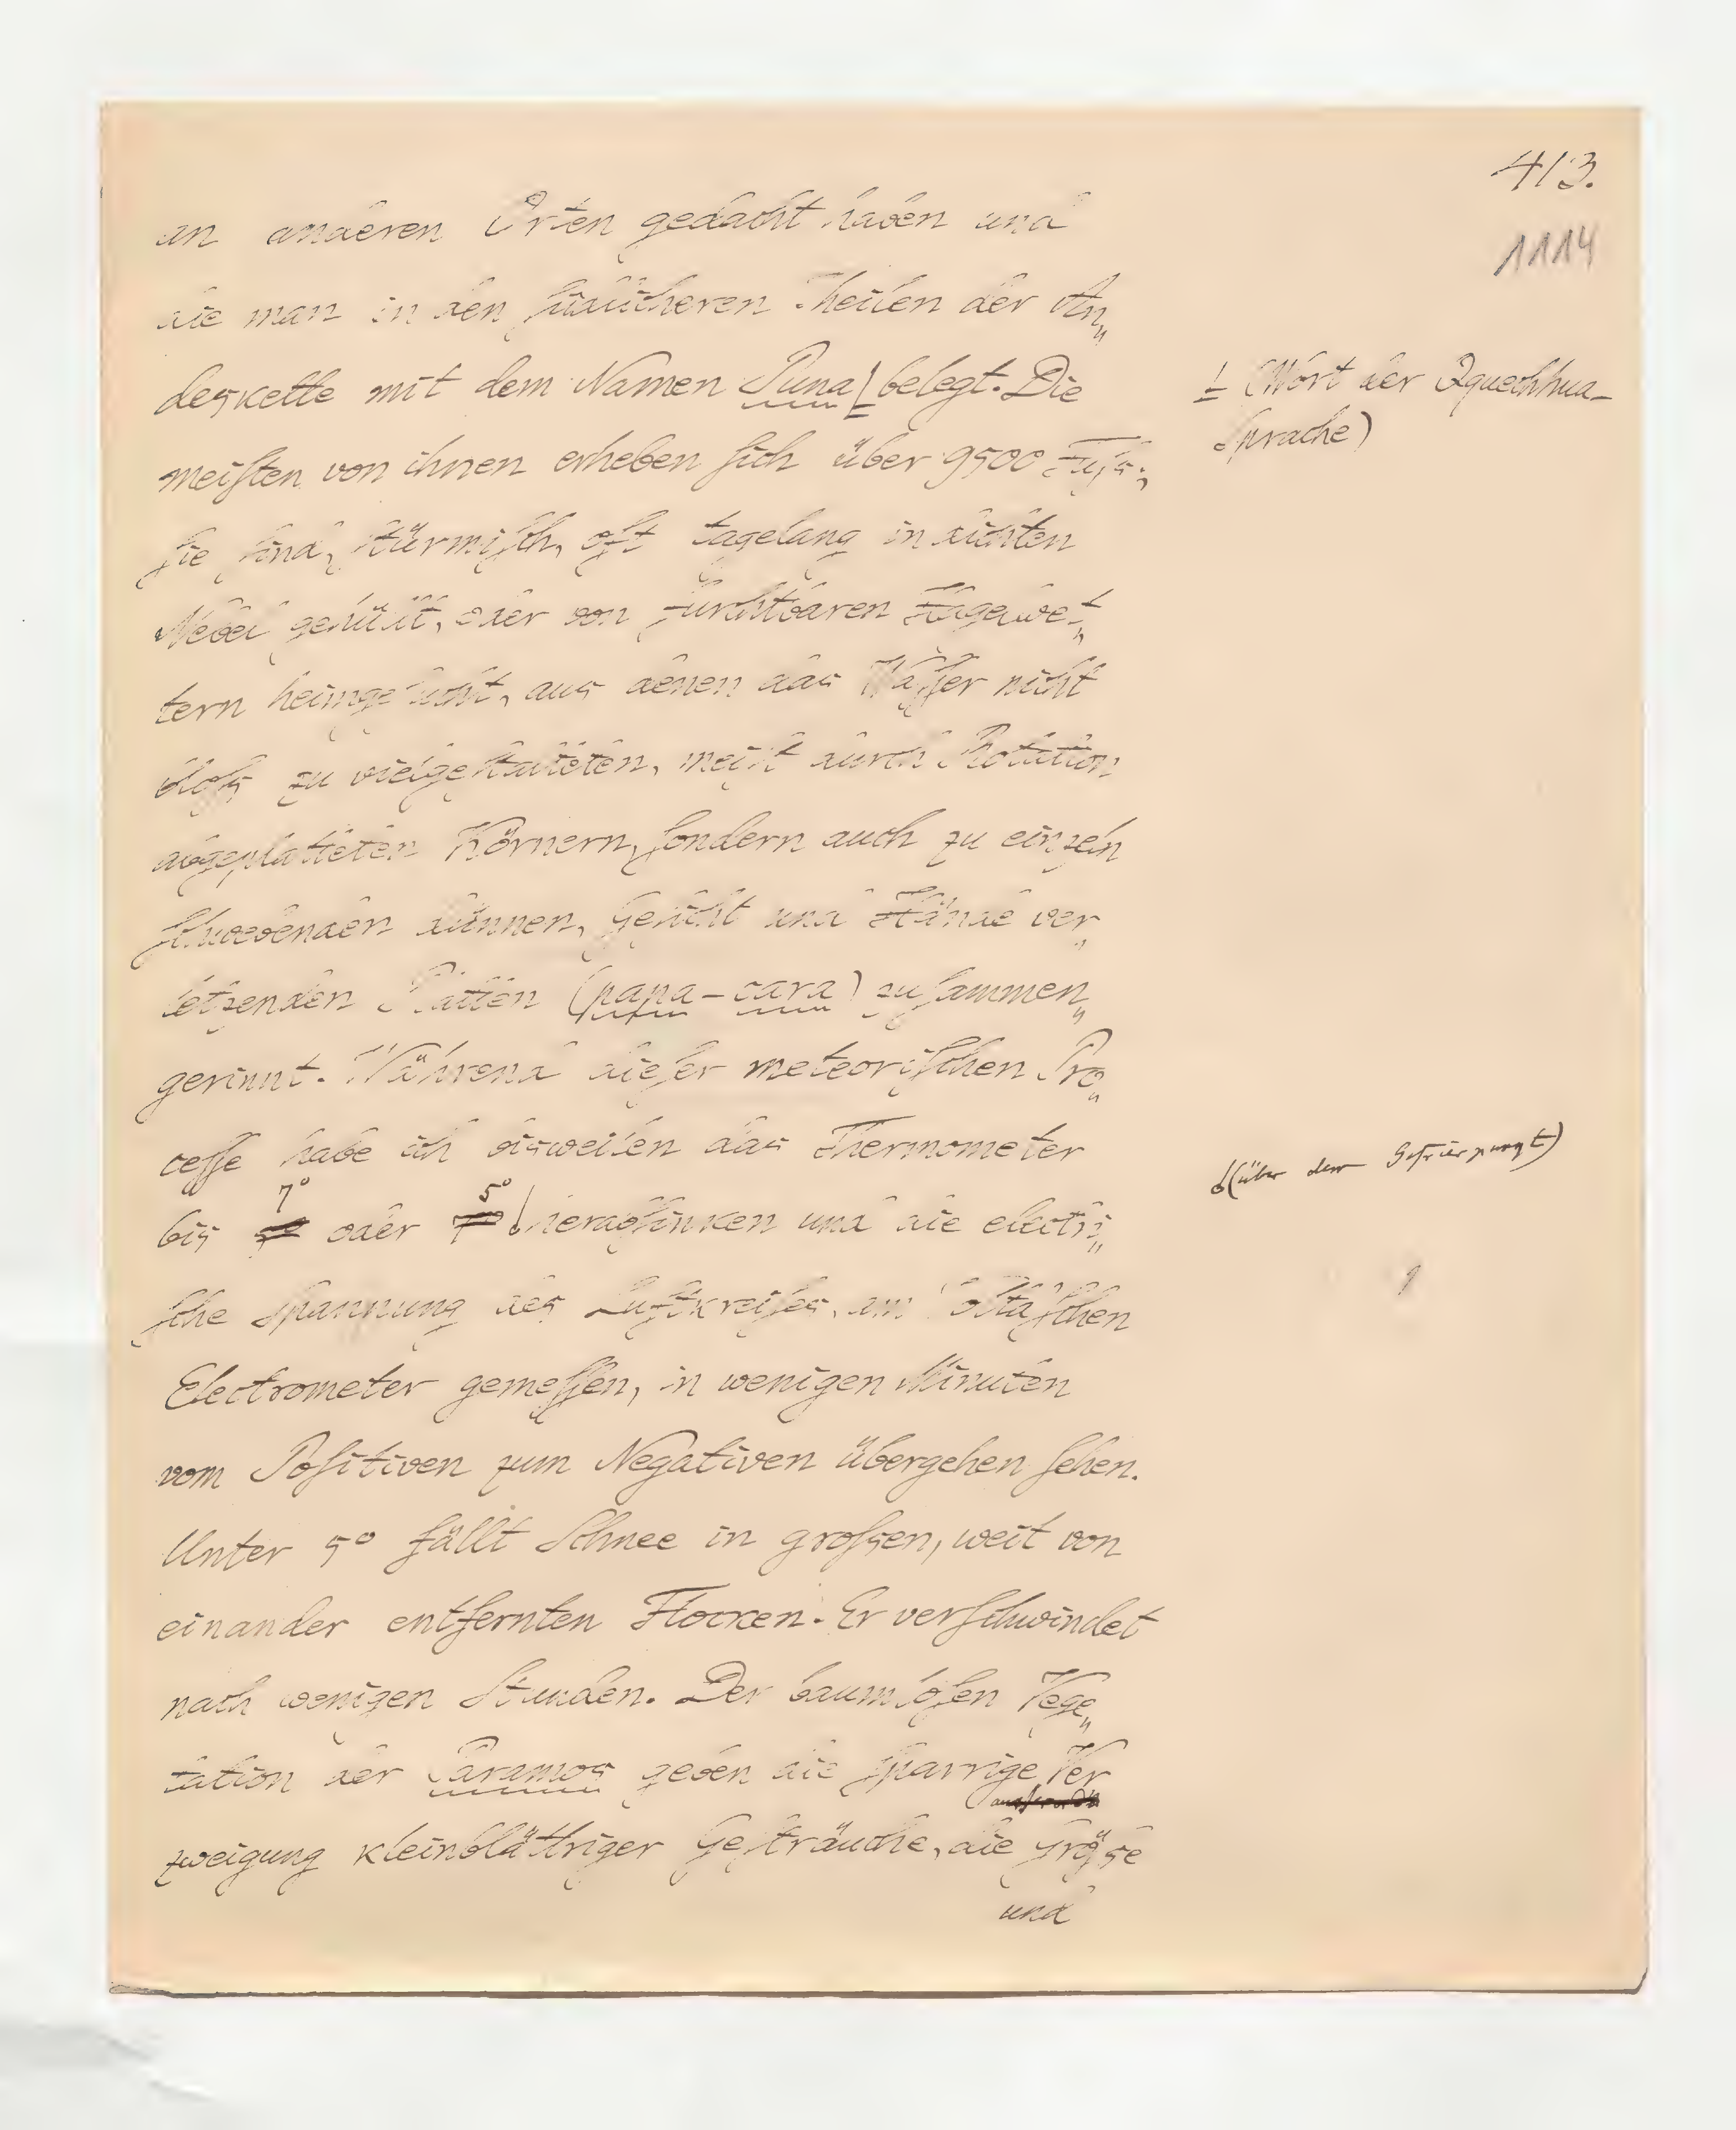 413.
1114
an anderen Orten gedacht haben und
die man in den südlicheren Theilen der An„
deskette mit dem Namen Puna belegt. Die
⊥ (Wort der Qquechhua-
Sprache)
meisten von ihnen erheben sich über 9500 Fuß;
sie sind stürmisch, oft tagelang in dichten
Nebel gehüllt, oder von furchtbaren Hagelwet„
tern heimgesucht, aus denen das Wasser nicht
bloß zu vielgestalteten, meist durch Rotation
abgeplatteten Körnern, sondern auch zu einzeln
schwebenden dünnen, Gesicht und Hände ver„
letzenden Platten (papa-cara) zusammen„
gerinnt. Während dieser meteorischen Pro„
cesse habe ich bisweilen das Thermometer
(über dem Gefrierpunct)
7° 5°
bis oder herabsinken und die electri„
sche Spannung des Luftkreises, am Voltaischen
Electrometer gemessen, in wenigen Minuten
vom Positiven zum Negativen übergehen sehen.
Unter 5° fällt Schnee in großen, weit von
einander entfernten Flocken. Er verschwindet
nach wenigen Stunden. Der baumlosen Vege„
tation der Paramos geben die sparrige Ver
zweigung kleinblättriger Gesträuche, die Größe
und